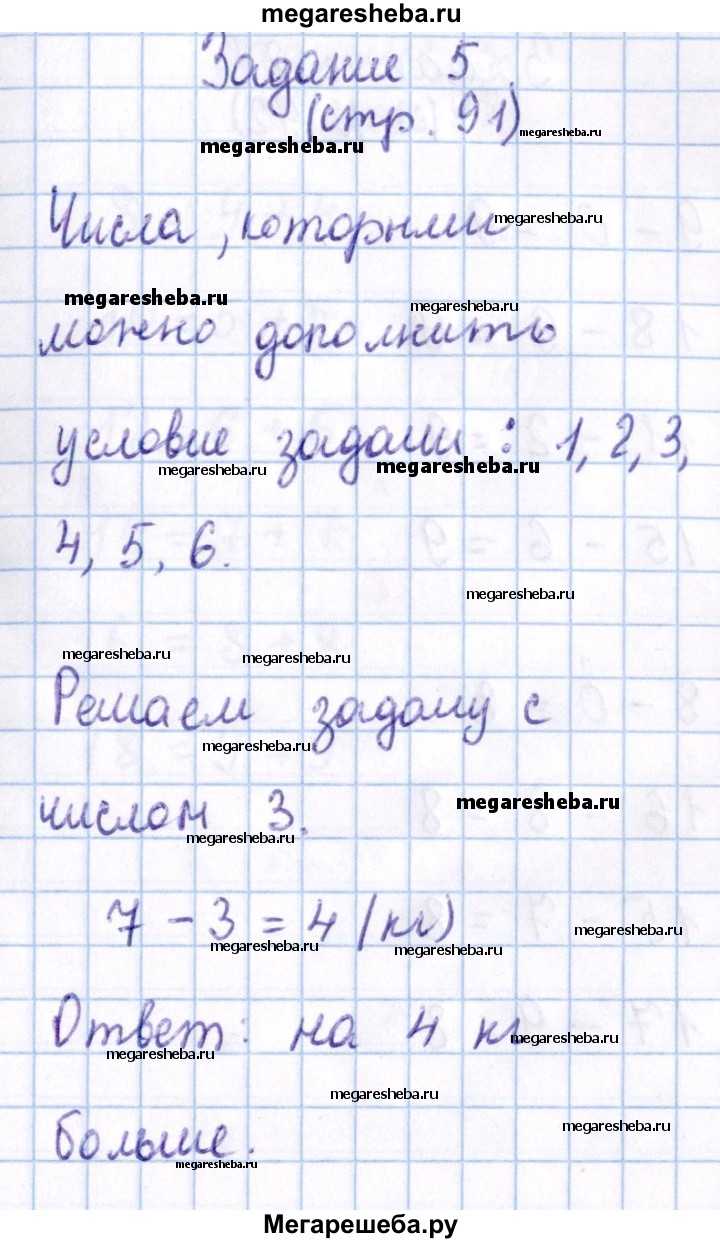 megaresheba.ru
Задание 5.
(стр. 91) megaresheba.ru
megaresheba.ru
Числа, которыми megaresheba.ru
megaresheba.ru megaresheba.ru
можно дополнить
условие задачи: 1, 2, 3,
megaresheba.ru megaresheba.ru
4, 5, 6.
megaresheba.ru
megaresheba.ru megaresheba.ru
Решаем задачу с
megaresheba.ru
числом 3. megaresheba.ru
megaresheba.ru
7 - 3 = 4 (кг) megaresheba.ru
megaresheba.ru megaresheba.ru
Ответ: на 4 кг megaresheba.ru
megaresheba.ru
megaresheba.ru
больше. megaresheba.ru
megaresheba.ru
Мегарешеба.ру